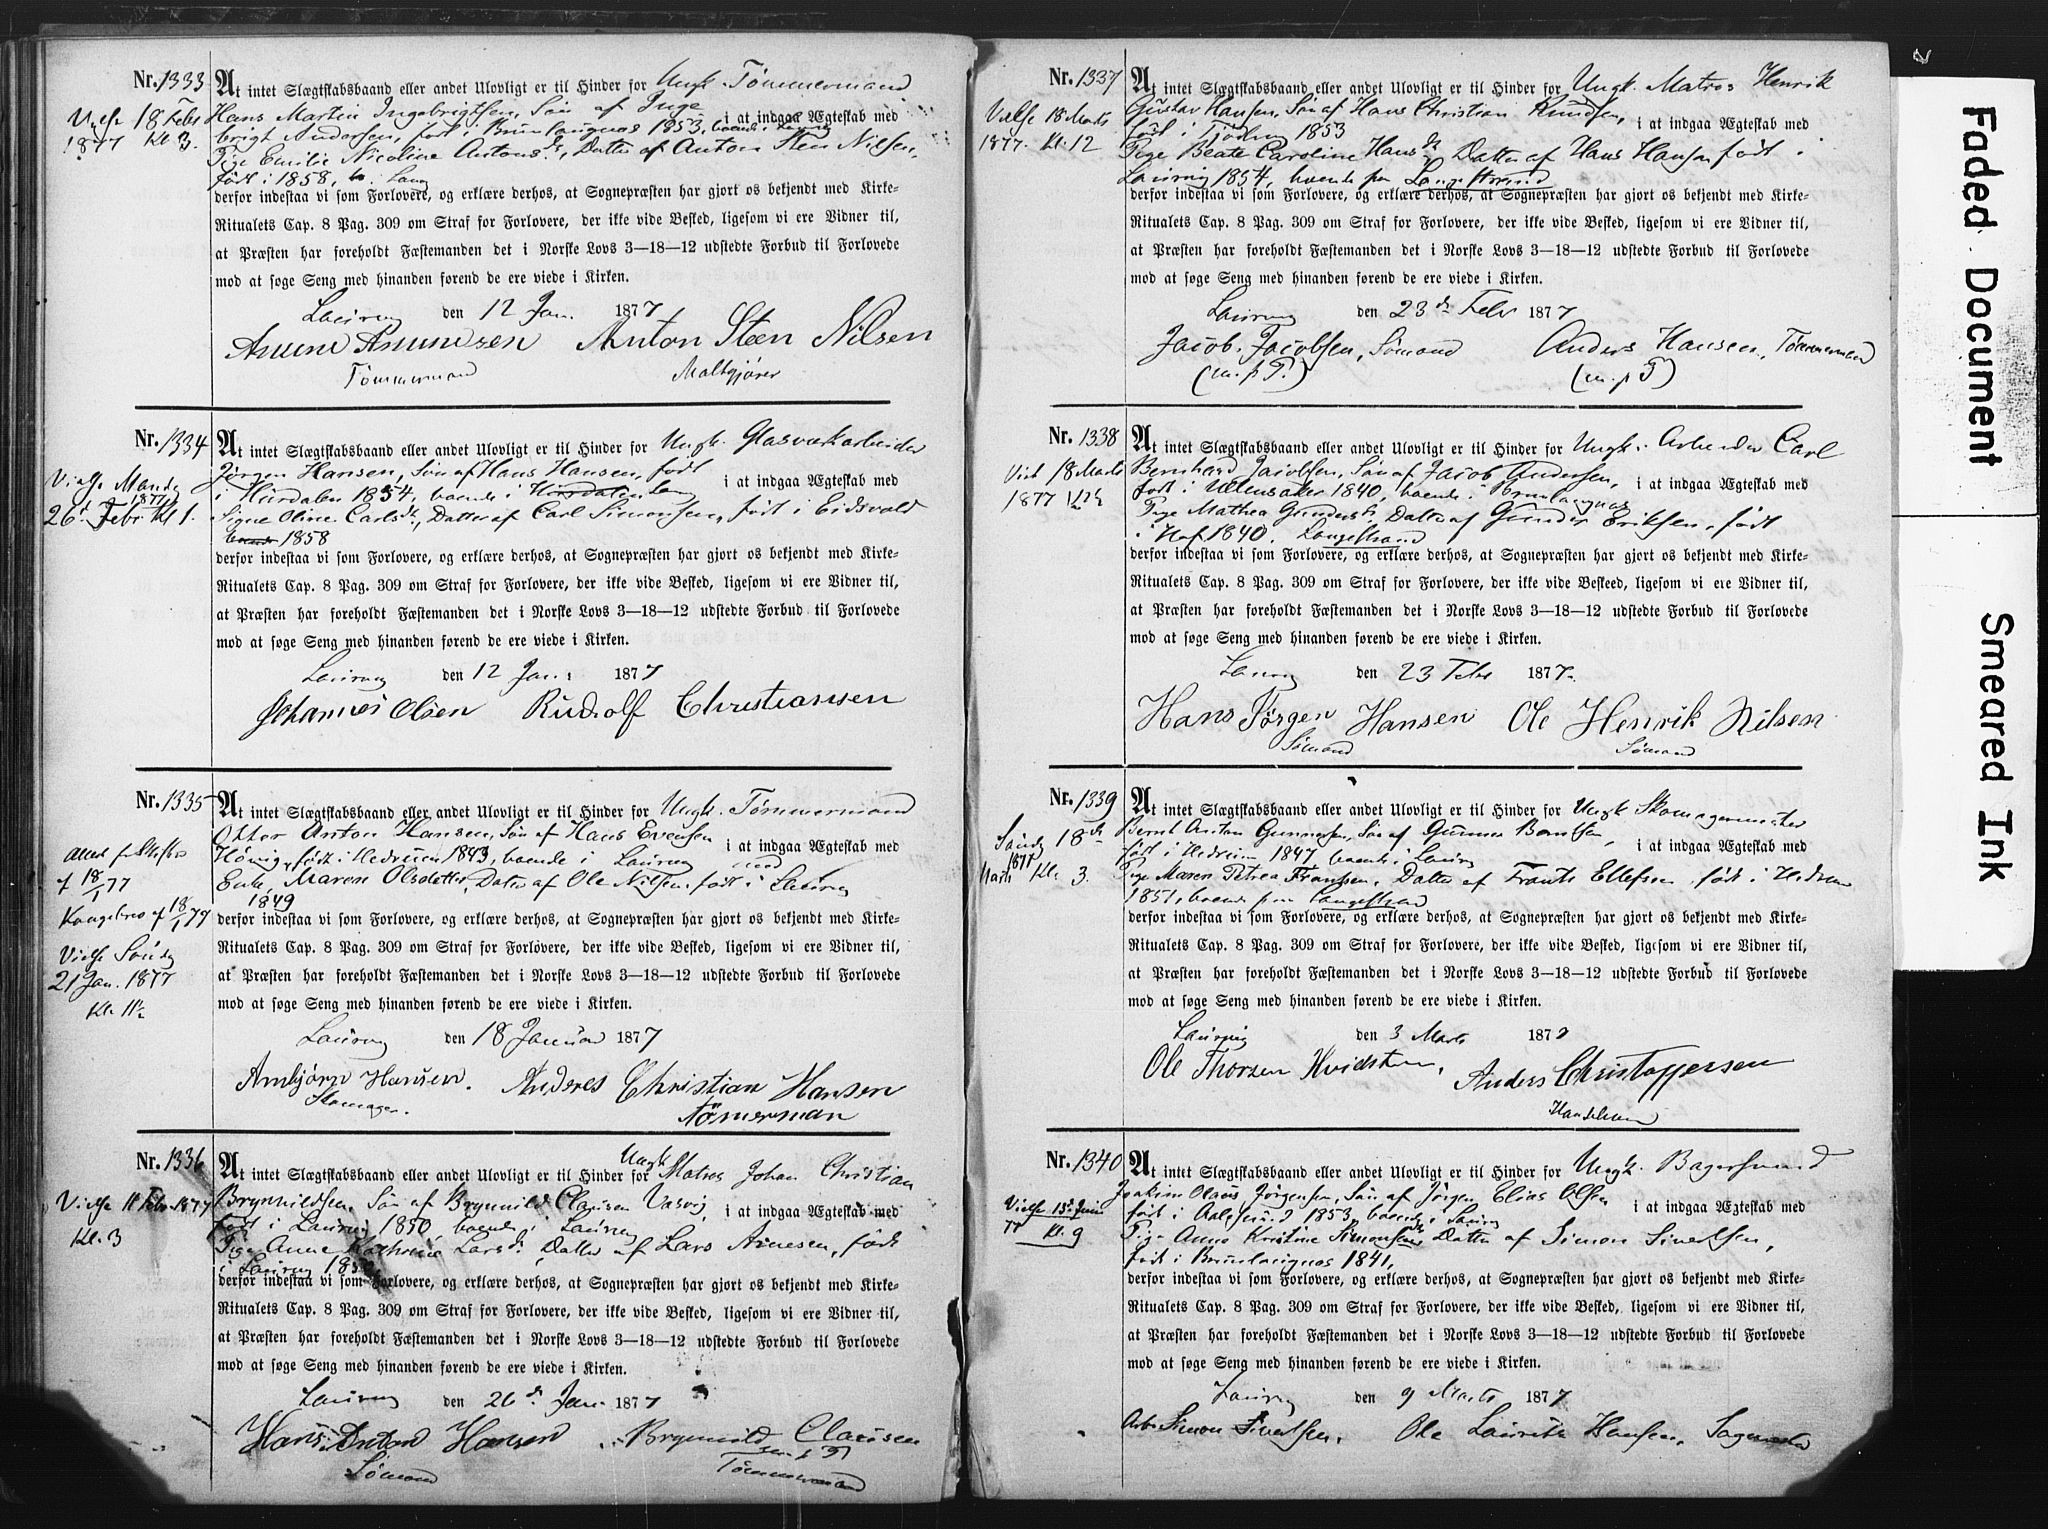 Nr. 1333
At intet Slægtskabsbaand eller andet Ulovligt er til Hinder for Ungk. Tømmermand
Vielse 18 Febr
1877 Kl 3.
Hans Martin Ingebrigtsen, Søn af Inge
brigt Andersen, født i Brunlaugnæs 1853, boende i Laurvig i at indgaa Ægteskab med
Pige Emilie Nicoline Antonsd., Datter af Anton Sten Nilsen,
født i 1858, b. i Laurv
derfor indestaa vi som Forlovere, og erklære derhos, at Sognepræsten har gjort os bekjendt med Kirke-
Ritualets Cap. 8 Pag. 309 om Straf for Forlovere, der ikke vide Besked, ligesom vi ere Vidner til,
at Præsten har foreholdt Fæstemanden det i Norske Lovs 3—18—12 udstedte Forbud til Forlovede
mod at søge Seng med hinanden førend de ere viede i Kirken.
Laurvig den 12 Jan. 1877
Amund Amundsen Anton Steen Nilsen
Tømmermand Maltgjører
Nr. 1334
At intet Slægtskabsbaand eller andet Ulovligt er til Hinder for Ungk. Glasværkarbeider
Vielse Mandg
1877
26d Febr Kl 1.
Jørgen Hansen, Søn af Hans Hansen, født
i Hurdalen 1854, boende i Hurdalen Laurv i at indgaa Ægteskab med
Signe Oline Carlsd., Datter af Carl Simonsen, født i Eidsvold
boende 1858
derfor indestaa vi som Forlovere, og erklære derhos, at Sognepræsten har gjort os bekjendt med Kirke-
Ritualets Cap. 8 Pag. 309 om Straf for Forlovere, der ikke vide Besked, ligesom vi ere Vidner til,
at Præsten har foreholdt Fæstemanden det i Norske Lovs 3—18—12 udstedte Forbud til Forlovede
mod at søge Seng med hinanden førend de ere viede i Kirken.
Laurvig den 12 Jan. 1877
Johannes Olsen Rudolf Christiansen
Nr. 1335
At intet Slægtskabsbaand eller andet Ulovligt er til Hinder for Ungk. Tømmermand
Ottor Anton Hansen, Søn af Hans Evensen
Hönig, født i Hedrum 1843, boende i Laurvig i at indgaa Ægteskab med
Enke, Maren Olsdatter, Datter af Ole Nilsen, født i Laurvig
1849
Attest fr Skifter
af 18/1 77
Kongebrev af 18/1 77
Vielse Søndg
21 Jan. 1877
Kl. 11½
derfor indestaa vi som Forlovere, og erklære derhos, at Sognepræsten har gjort os bekjendt med Kirke-
Ritualets Cap. 8 Pag. 309 om Straf for Forlovere, der ikke vide Besked, ligesom vi ere Vidner til,
at Præsten har foreholdt Fæstemanden det i Norske Lovs 3—18—12 udstedte Forbud til Forlovede
mod at søge Seng med hinanden førend de ere viede i Kirken.
Laurvig den 18 Januar 1877
Arnbjørn Hansen. Anderes Christian Hansen
Skomager. Tömerman
Nr. 1336
At intet Slægtskabsbaand eller andet Ulovligt er til Hinder for Ungk. Matros Johan Christian
Vielse 11 Febr. 1877
Kl. 3
Brynnildsen, Søn af Brynnild Clausen Vasvig, i at indgaa Ægteskab med
født i Laurvig 1850, boende i Laurvig
Pige Anne Kathrine Larsd. Datter af Lars Arnesen, født
i Laurvig
derfor indestaa vi som Forlovere, og erklære derhos, at Sognepræsten har gjort os bekjendt med Kirke-
Ritualets Cap. 8 Pag. 309 om Straf for Forlovere, der ikke vide Besked, ligesom vi ere Vidner til,
at Præsten har foreholdt Fæstemanden det i Norske Lovs 3—18—12 udstedte Forbud til Forlovede
mod at søge Seng med hinanden førend de ere viede i Kirken.
Laurvig den 26d Jan. 1877
Hans Anton Hansen Brynnild Clausen
m p P
Sømand Tømmermand
Nr. 1337
At intet Slægtskabsbaand eller andet Ulovligt er til Hinder for Ungk. Matros Henrik
Vielse 18 Marts
1877. Kl. 12
Gustav Hansen, Søn af Hans Christian Knudsen, i at indgaa Ægteskab med
født i Tjødling 1853
Pige Beate Caroline Hansd. Datter af Hans Hansen født
Laurvig 1854, boende paa Langestrand
derfor indestaa vi som Forlovere, og erklære derhos, at Sognepræsten har gjort os bekjendt med Kirke-
Ritualets Cap. 8 Pag. 309 om Straf for Forlovere, der ikke vide Besked, ligesom vi ere Vidner til,
at Præsten har foreholdt Fæstemanden det i Norske Lovs 3—18—12 udstedte Forbud til Forlovede
mod at søge Seng med hinanden førend de ere viede i Kirken.
Laurvig den 23d Febr 1877
Jacob Jacobsen, Sømand Anders Hansen, Tømmermand
(m. p P.) (m. p P)
Nr. 1338
At intet Slægtskabsbaand eller andet Ulovligt er til Hinder for Ungk. Arbeider Carl
Viet 18 Marts
1877 1½
Bernhard Jacobsen, Søn af Jacob Andersen, i at indgaa Ægteskab med
født i Ullensaker 1840, boende i Brunlaugnæs
Pige Mathea Gundersd. Datter af Gunder Eriksen, født
i Hof 1840. Langestrand
derfor indestaa vi som Forlovere, og erklære derhos, at Sognepræsten har gjort os bekjendt med Kirke-
Ritualets Cap. 8 Pag. 309 om Straf for Forlovere, der ikke vide Beskeed, ligesom vi ere Vidner til,
at Præsten har foreholdt Fæstemanden det i Norske Lovs 3—18—12 udstedte Forbud til Forlovede
mod at søge Seng med hinanden førend de ere viede i Kirken.
Laurvig den 23 Febr 1877
Hans Jörgen Hansen Ole Henrik Nilsen
Sømand Sømand
Nr. 1339
At intet Slægtskabsbaand eller andet Ulovligt er til Hinder for Ungk Skomagermester
Søndg 18de
1877
Marts Kl. 3.
Bernt Anton Gunnersen, Søn af Gunner Berntsen, i at indgaa Ægteskab med
født i Hedrum 1847 boende i Laurvig
Pige Maren Petrea Frantsen, Datter af Frants Ellefsen, født i Hedrum
1851, boende paa Langestrand
derfor indestaa vi som Forlovere, og erklære derhos, at Sognepræsten har gjort os bekjendt med Kirke-
Ritualets Cap. 8 Pag. 309 om Straf for Forlovere, der ikke vide Besked, ligesom vi ere Vidner til,
at Præsten har foreholdt Fæstemanden det i Norske Lovs 3—18—12 udstedte Forbud til Forlovede
mod at søge Seng med hinanden førend de ere viede i Kirken.
Laurvig den 3 Marts 1877
Ole Thorsen Hvidsteen, Anders Christoffersen
Handelsmand
Nr. 1340
At intet Slægtskabsbaand eller andet Ulovligt er til Hinder for Ungk. Bagersvend
Vielse 15de Juni
77 Kl. 9
Joakim Olaus Jørgensen, Søn af Jörgen Elias Olsen
født i Aalesund 1853, boende i Laurvig i at indgaa Ægteskab med
Pige Anne Kristine Simonsen, Datter af Simon Sivertsen,
født i Brunlaugnæs 1841,
derfor indestaa vi som Forlovere, og erklære derhos, at Sognepræsten har gjort os bekjendt med Kirke-
Ritualets Cap. 8 Pag. 309 om Straf for Forlovere, der ikke vide Besked, ligesom vi ere Vidner til,
at Præsten har foreholdt Fæstemanden det i Norske Lovs 3—18—12 udstedte Forbud til Forlovede
mod at søge Seng med hinanden førend de ere viede i Kirken.
Laurvig den 9 Marts 1877
Arb. Simon Sivertsen. Ole Lauritz Hansen, Sagmester
Faded Document
Smeared Ink